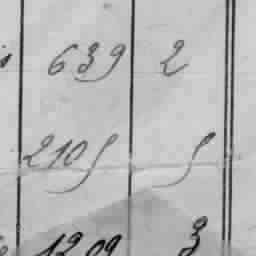 639 2
2105 5
1209 3